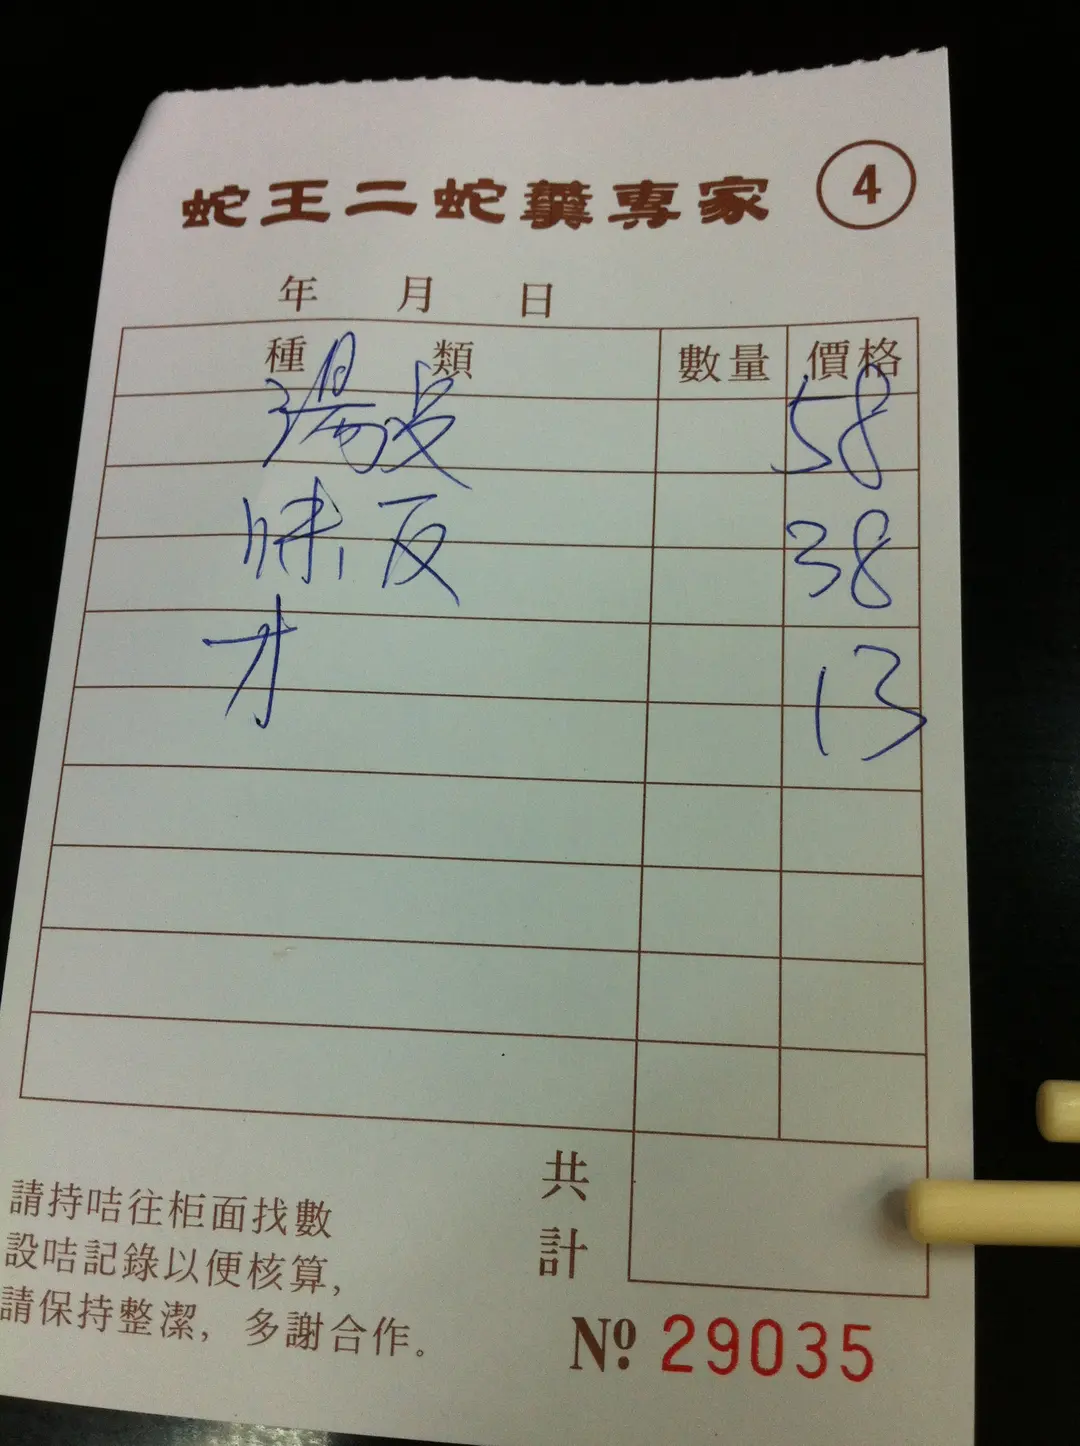 蛇王二蛇羹專家 4
年 月 日
種類 數量 價格
58
味反 38
才 13
共計
請持咭往柜面找數
設咭記錄以便核算,
請保持整潔, 多謝合作。
Nº 29035